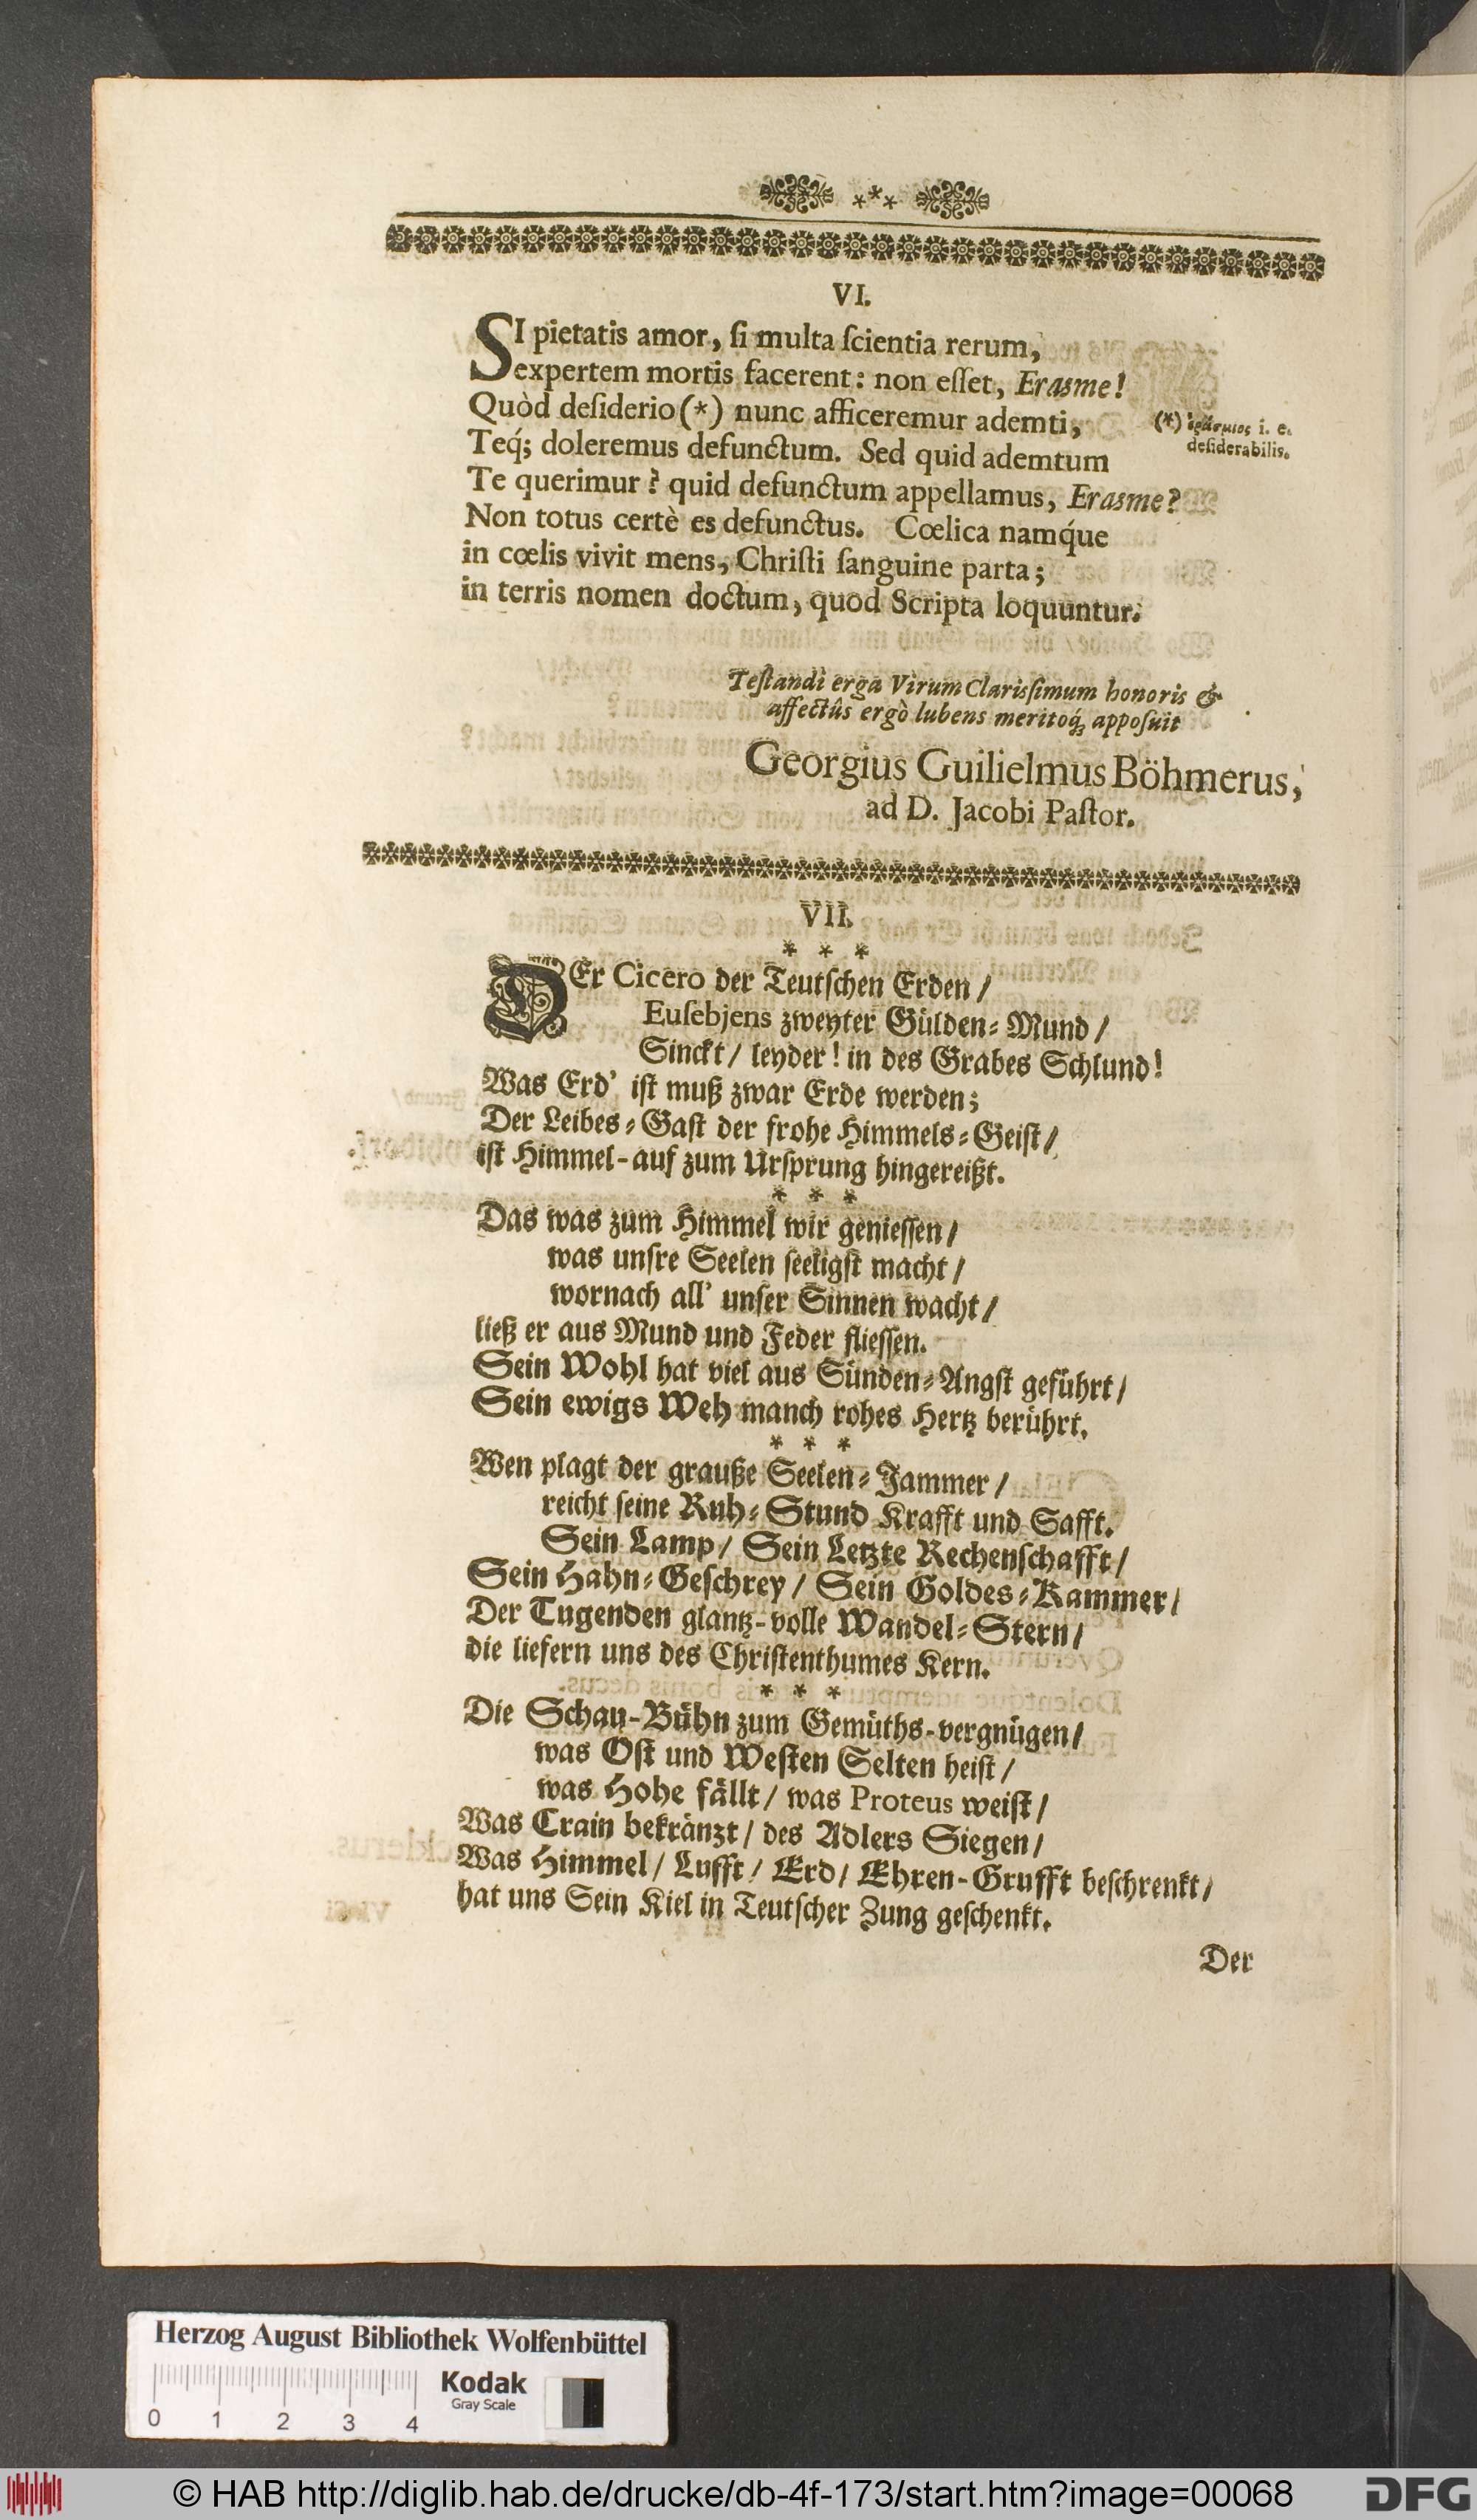 ***
VI.
SI pietatis amor, ſi multa ſcientia rerum,
expertem mortis facerent: non eſſet, Erasme!
Quòd deſiderio (*) nunc afficeremur ademti,
(*) ἐράσμιος i. e.
deſiderabilis.
Teq́; doleremus defunctum. Sed quid ademtum
Te querimur? quid defunctum appellamus, Erasme?
Non totus certè es defunctus. Cœlica namq́ue
in cœlis vivit mens, Chriſti ſanguine parta;
in terris nomen doctum, quod Scripta loquuntur.
Teſtandi erga Virum Clarisſimum honoris &
affectûs ergò lubens meritoq́; appoſuit
Georgius Guilielmus Böhmerus,
ad D. Jacobi Paſtor.
VII.
* * *
DEr Cicero der Teutſchen Erden /
Euſebjens zweyter Gülden-Mund /
Sinckt / leyder! in des Grabes Schlund!
Was Erd' iſt muß zwar Erde werden;
Der Leibes-Gaſt der frohe Himmels-Geiſt /
iſt Himmel-auf zum Urſprung hingereißt.
* * *
Das was zum Himmel wir genieſſen /
was unſre Seelen ſeeligſt macht /
wornach all' unſer Sinnen wacht /
ließ er aus Mund und Feder flieſſen.
Sein Wohl hat viel aus Sünden-Angſt geführt /
Sein ewigs Weh manch rohes Hertz berührt.
* * *
Wen plagt der grauße Seelen-Jammer /
reicht ſeine Ruh-Stund Krafft und Safft.
Sein Lamp / Sein Letzte Rechenſchafft /
Sein Hahn-Geſchrey / Sein Goldes-Kammer /
Der Tugenden glantz-volle Wandel-Stern /
die liefern uns des Chriſtenthumes Kern.
* * *
Die Schau-Bühn zum Gemüths-vergnügen /
was Oſt und Weſten Selten heiſt /
was Hohe fällt / was Proteus weiſt /
Was Crain bekränzt / des Adlers Siegen /
Was Himmel / Lufft / Erd / Ehren-Grufft beſchrenkt /
hat uns Sein Kiel in Teutſcher Zung geſchenkt.
Der
Herzog August Bibliothek Wolfenbüttel
Kodak
Gray Scale
0 1 2 3 4
© HAB http://diglib.hab.de/drucke/db-4f-173/start.htm?image=00068
DFG